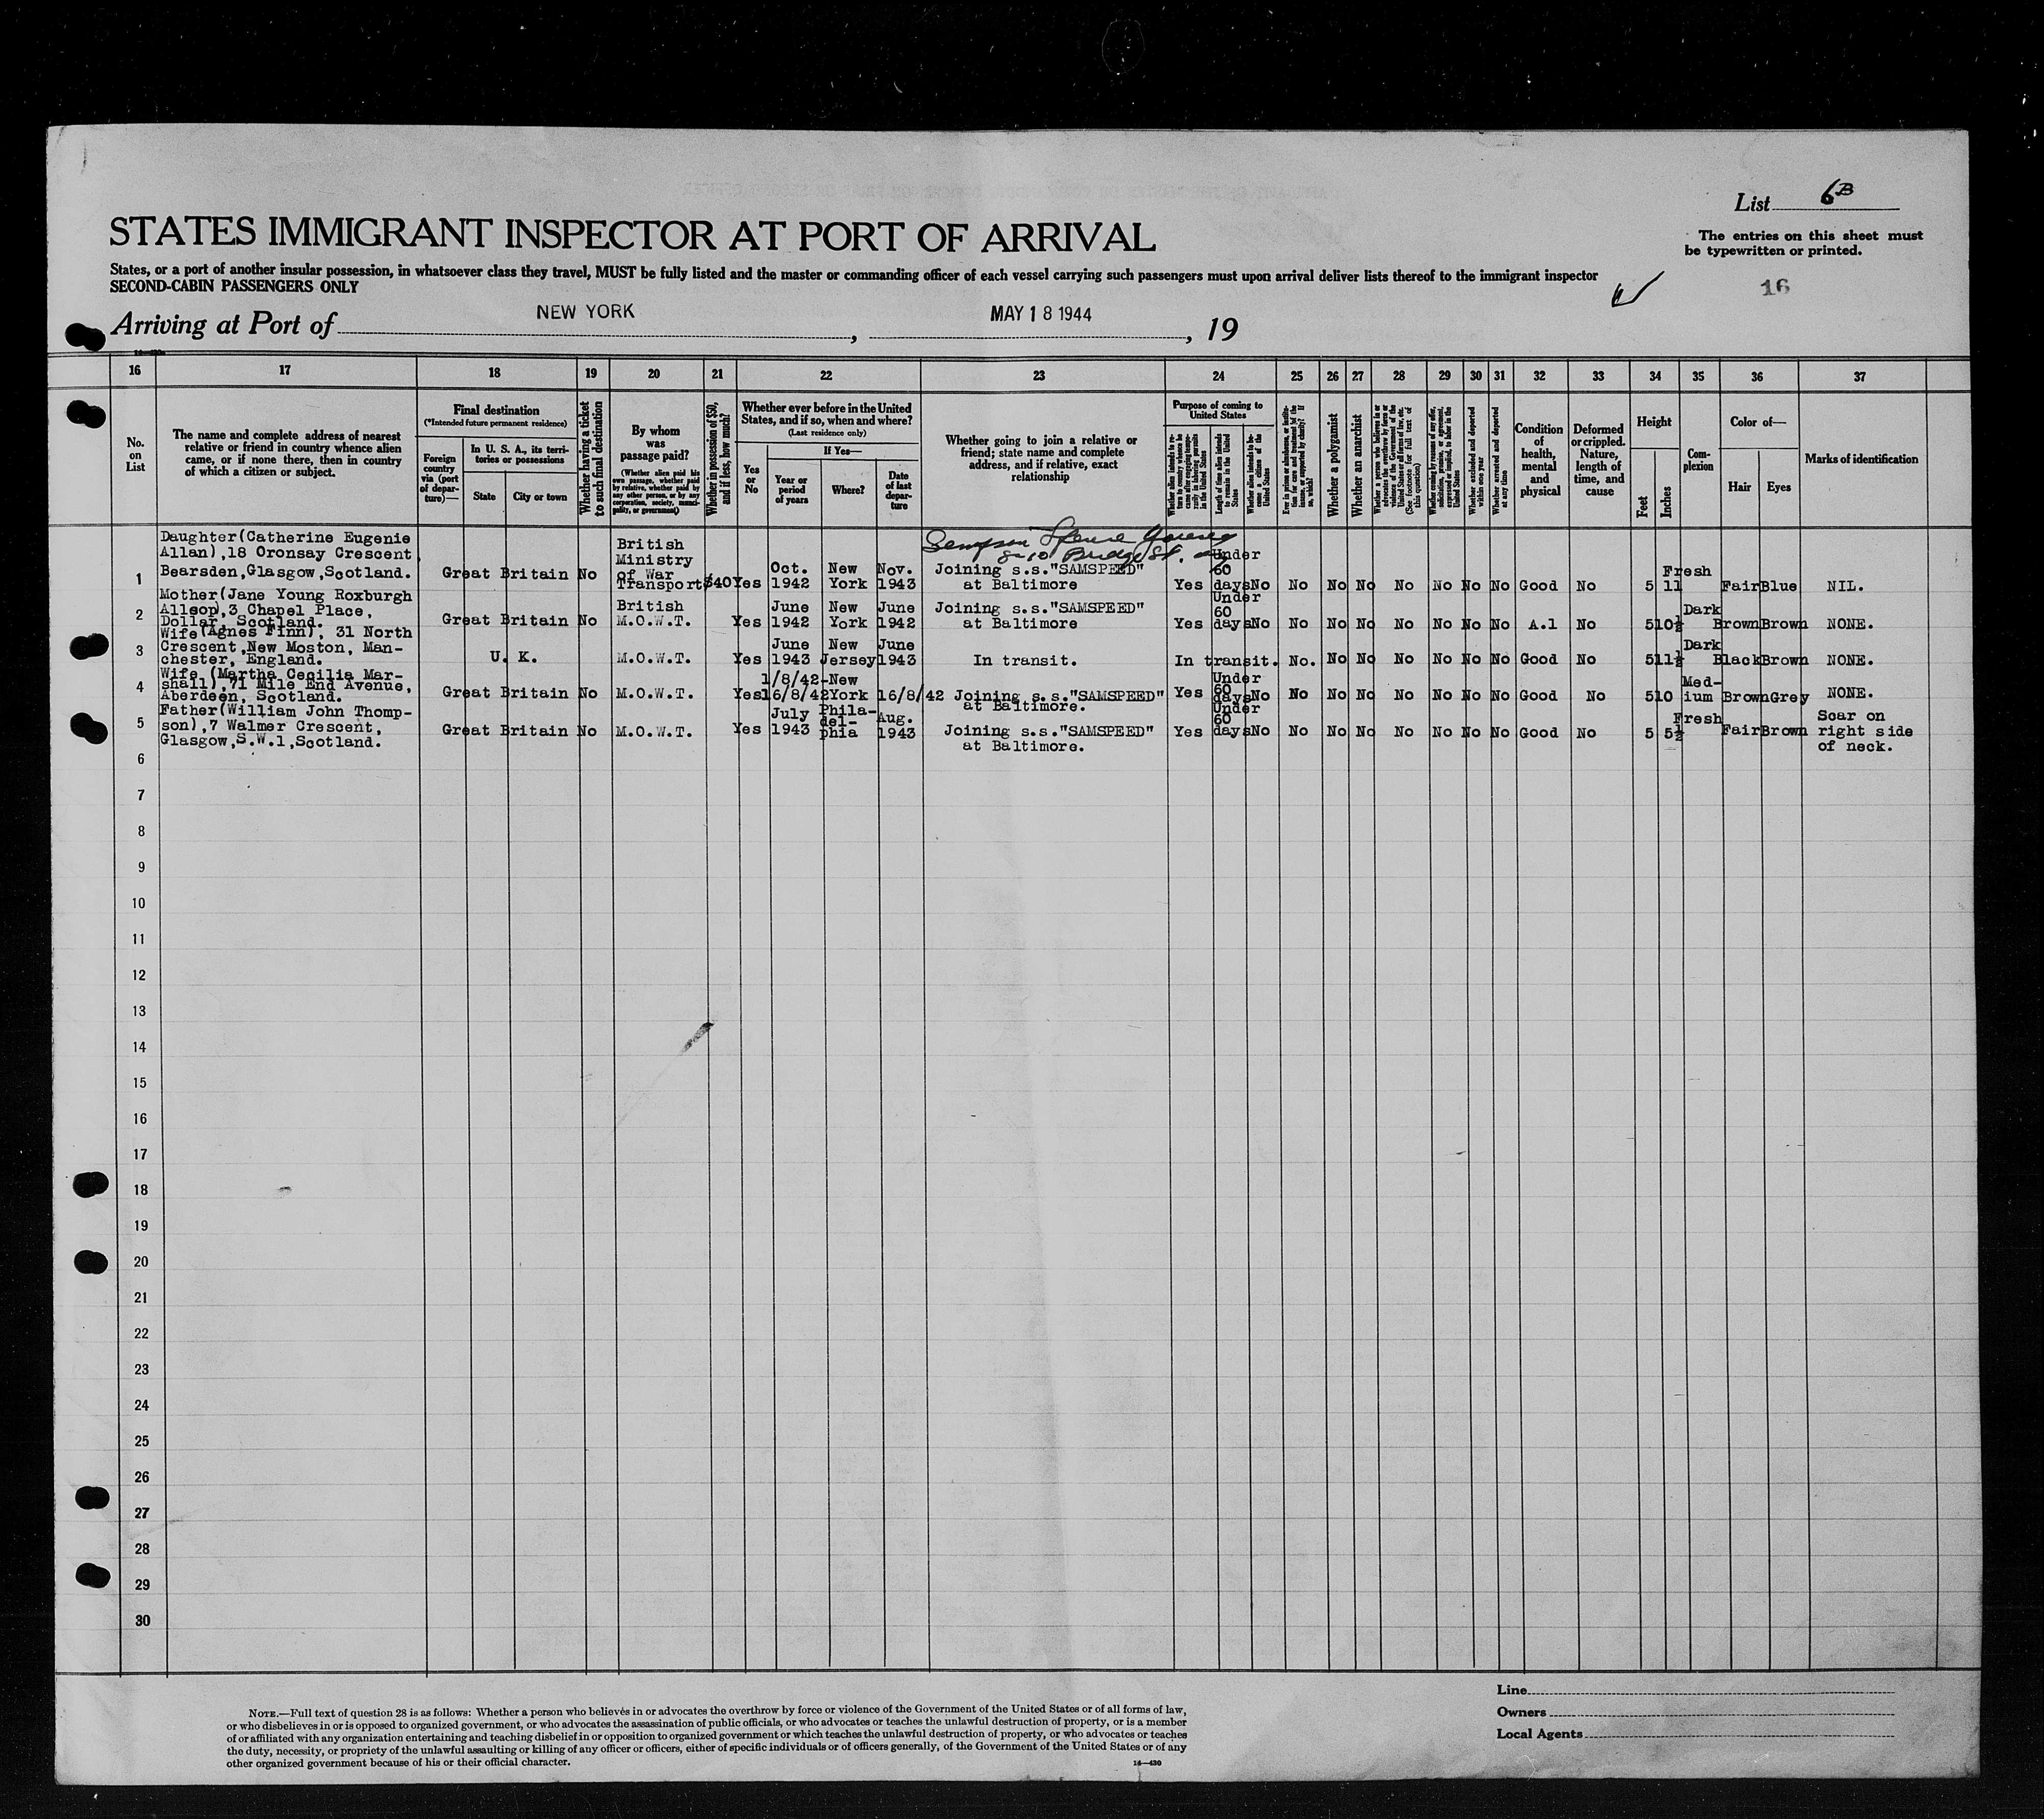 List 6B
STATES IMMIGRANT INSPECTOR AT PORT OF ARRIVAL
The entries on this sheet must
be typewritten or printed.
States, or a port of another insular possession, in whatsoever class they travel, MUST be fully listed and the master or commanding officer of each vessel carrying such passengers must upon arrival deliver lists thereof to the immigrant inspector
SECOND-CABIN PASSENGERS ONLY
16
Arriving at Port of NEW YORK, MAY 18 1944, 19
16 17 18 19 20 21 22 23 24 25 26 27 28 29 30 31 32 33 34 35 36 37
No. on List
The name and complete address of nearest
relative or friend in country whence alien
came, or if none there, then in country
of which a citizen or subject.
Final destination
(*Intended future permanent residence)
Foreign country via (port of departure)—
In U. S. A., its territories or possessions
State
City or town
Whether having a ticket to such final destination
By whom was passage paid?
(Whether alien paid his own passage, whether paid by relative, whether paid by any other person, or by any corporation, society, municipality, or government)
Whether in possession of $50, and if less, how much?
Whether ever before in the United States, and if so, when and where?
(Last residence only)
Yes or No
If Yes—
Year or period of years
Where?
Date of last departure
Whether going to join a relative or
friend; state name and complete
address, and if relative, exact
relationship
Purpose of coming to United States
Length of time alien intends to remain in the United States
Whether a polygamist
Whether an anarchist
Whether excluded and deported within one year
Whether arrested and deported at any time
Condition of health, mental and physical
Deformed or crippled. Nature, length of time, and cause
Height
Feet
Inches
Complexion
Color of—
Hair
Eyes
Marks of identification
1 Daughter(Catherine Eugenie
Allan),18 Oronsay Crescent,
Bearsden,Glasgow,Scotland.
Great Britain No British Ministry of War Transport $40 Yes Oct. 1942 New York Nov. 1943
Bridge St.
Joining s.s."SAMSPEED"
at Baltimore
Yes Under 60 days No No No No No No No No Good No 5 11 Fresh Fair Blue NIL.
2 Mother(Jane Young Roxburgh
Allsop),3 Chapel Place,
Dollar, Scotland.
Great Britain No British M.O.W.T. Yes June 1942 New York June 1942
Joining s.s."SAMSPEED"
at Baltimore
Yes Under 60 days No No No No No No No No A.1 No 5 10½ Dark Brown Brown NONE.
3 Wife(Agnes Finn), 31 North
Crescent,New Moston, Man-
chester, England.
U. K. M.O.W.T. Yes June 1943 New Jersey June 1943
In transit. In transit. No. No No No No No No Good No 5 11½ Dark Black Brown NONE.
4 Wife (Martha Cecilia Mar-
shall), 71 Mile End Avenue,
Aberdeen, Scotland.
Great Britain No M.O.W.T. Yes 1/8/42-16/8/42 New York 16/8/42
Joining s.s."SAMSPEED"
at Baltimore.
Yes Under 60 days No No No No No No No No Good No 5 10 Med-ium Brown Grey NONE.
5 Father(William John Thomp-
son),7 Walmer Crescent,
Glasgow,S.W.1,Scotland.
Great Britain No M.O.W.T. Yes July 1943 Phila-del-phia Aug. 1943
Joining s.s."SAMSPEED"
at Baltimore.
Yes Under 60 days No No No No No No No No Good No 5 5½ Fresh Fair Brown Scar on right side of neck.
6
7
8
9
10
11
12
13
14
15
16
17
18
19
20
21
22
23
24
25
26
27
28
29
30
Line
Owners
Local Agents
NOTE.—Full text of question 28 is as follows: Whether a person who believes in or advocates the overthrow by force or violence of the Government of the United States or of all forms of law,
or who disbelieves in or is opposed to organized government, or who advocates the assassination of public officials, or who advocates or teaches the unlawful destruction of property, or is a member
of or affiliated with any organization entertaining and teaching disbelief in or opposition to organized government or which teaches the unlawful destruction of property, or who advocates or teaches
the duty, necessity, or propriety of the unlawful assaulting or killing of any officer or officers, either of specific individuals or of officers generally, of the Government of the United States or of any
other organized government because of his or their official character.
14—430